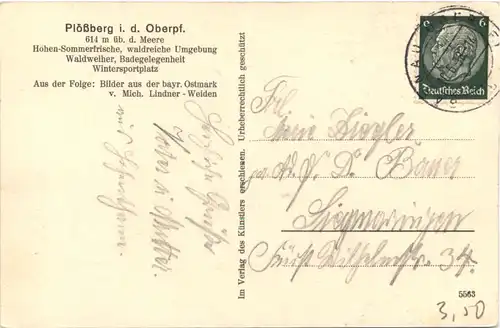 Plößberg i. d. Oberpf.
614 m üb. d. Meere
Hohen-Sommerfrische, waldreiche Umgebung
Waldweiher, Badegelegenheit
Wintersportplatz
Aus der Folge: Bilder aus der bayr. Ostmark
v. Mich. Lindner - Weiden
Herzliche Grüße
Vater u. Mutter.
Im Verlag des Künstlers erschienen. Urheberrechtlich geschützt
6
Deutsches Reich
Frl.
Ziegler
Dr. Bauer
Sigmaringen
Fürst Wilhelmstr. 34.
5563
3,50